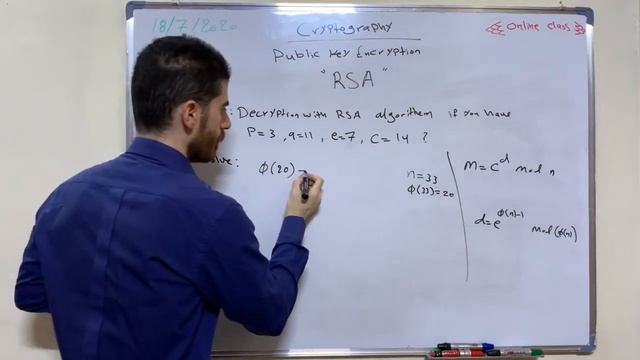 18/7/2020
Cryptography
Online class
Public Key Encryption
"RSA"
: Decryption with RSA algorithem if you have
P=3 , q=11 , e=7 , C=14 ?
olve :
φ(20)
n=33
φ(33)=20
M=C^d mod n
d=e^φ(n)-1 mod(φ(n))